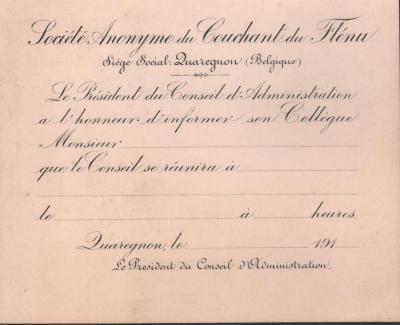 Société Anonyme du Couchant du Flénu
Siège Social: Quaregnon (Belgique)
Le Président du Conseil d'Administration
a l'honneur d'informer son Collègue
Monsieur
que le Conseil se réunira à
le à heures.
Quaregnon, le 191
Le President du Conseil d'Administration.